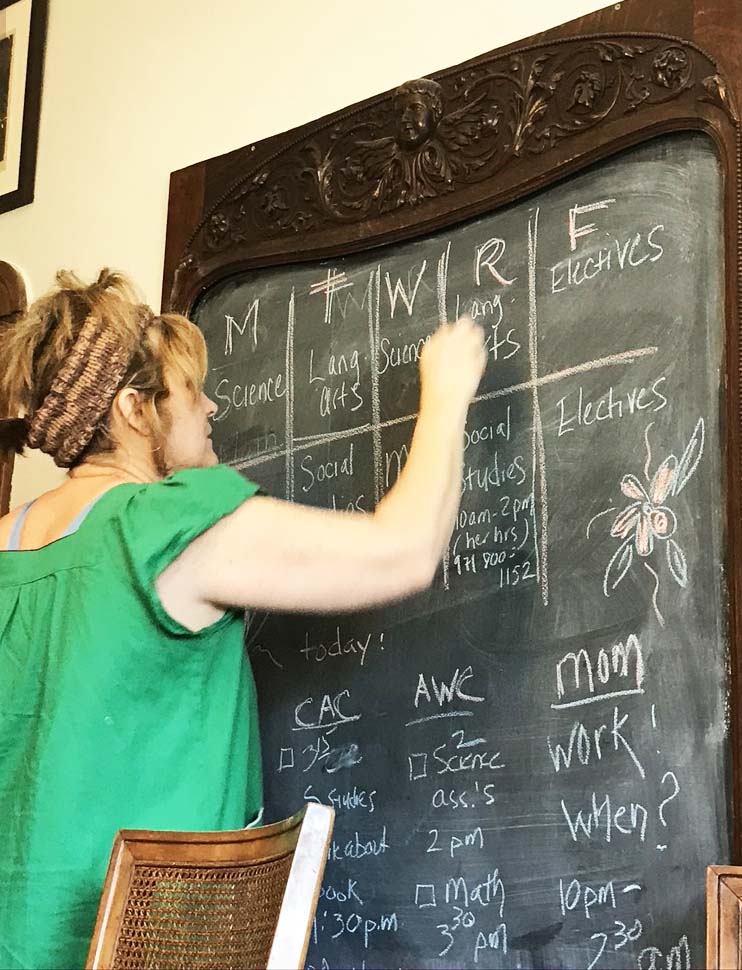 M T W R F
Science
Lang. arts
Science
Lang. arts
Electives
Social
Social studies
10am-2pm
(her hrs)
971 800-
1152
Electives
today!
CAC
315
Studies
book
1:30p.m
AWC
2 Science
ass.'s
2 pm
Math
3 30
pm
Mom
Work!
When?
10pm-
2 30
am